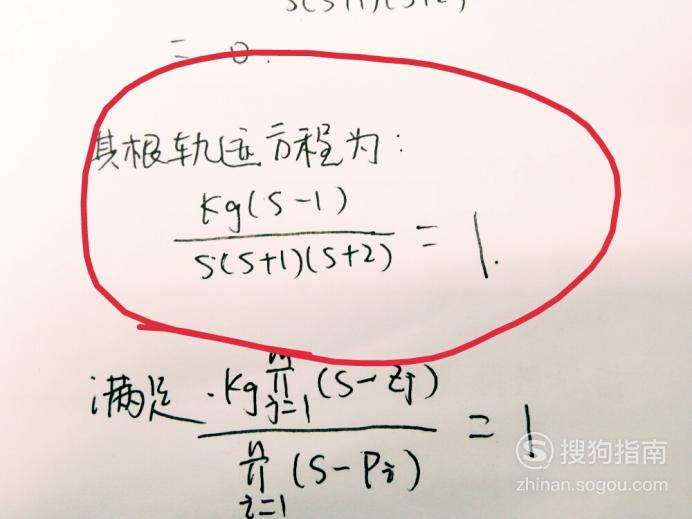 S(S+1)(S+2)
= 0.
其根轨迹方程为:
Kg(S-1)
S(S+1)(S+2)
= 1.
满足.
Kg
m
∏
j=1
(S-Zj)
n
∏
i=1
(S-Pi)
= 1
搜狗指南
zhinan.sogou.com